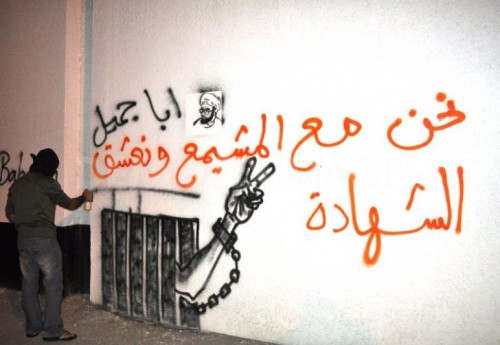 ابا جميل
نحن مع المشيمع ونعشق
الشهادة